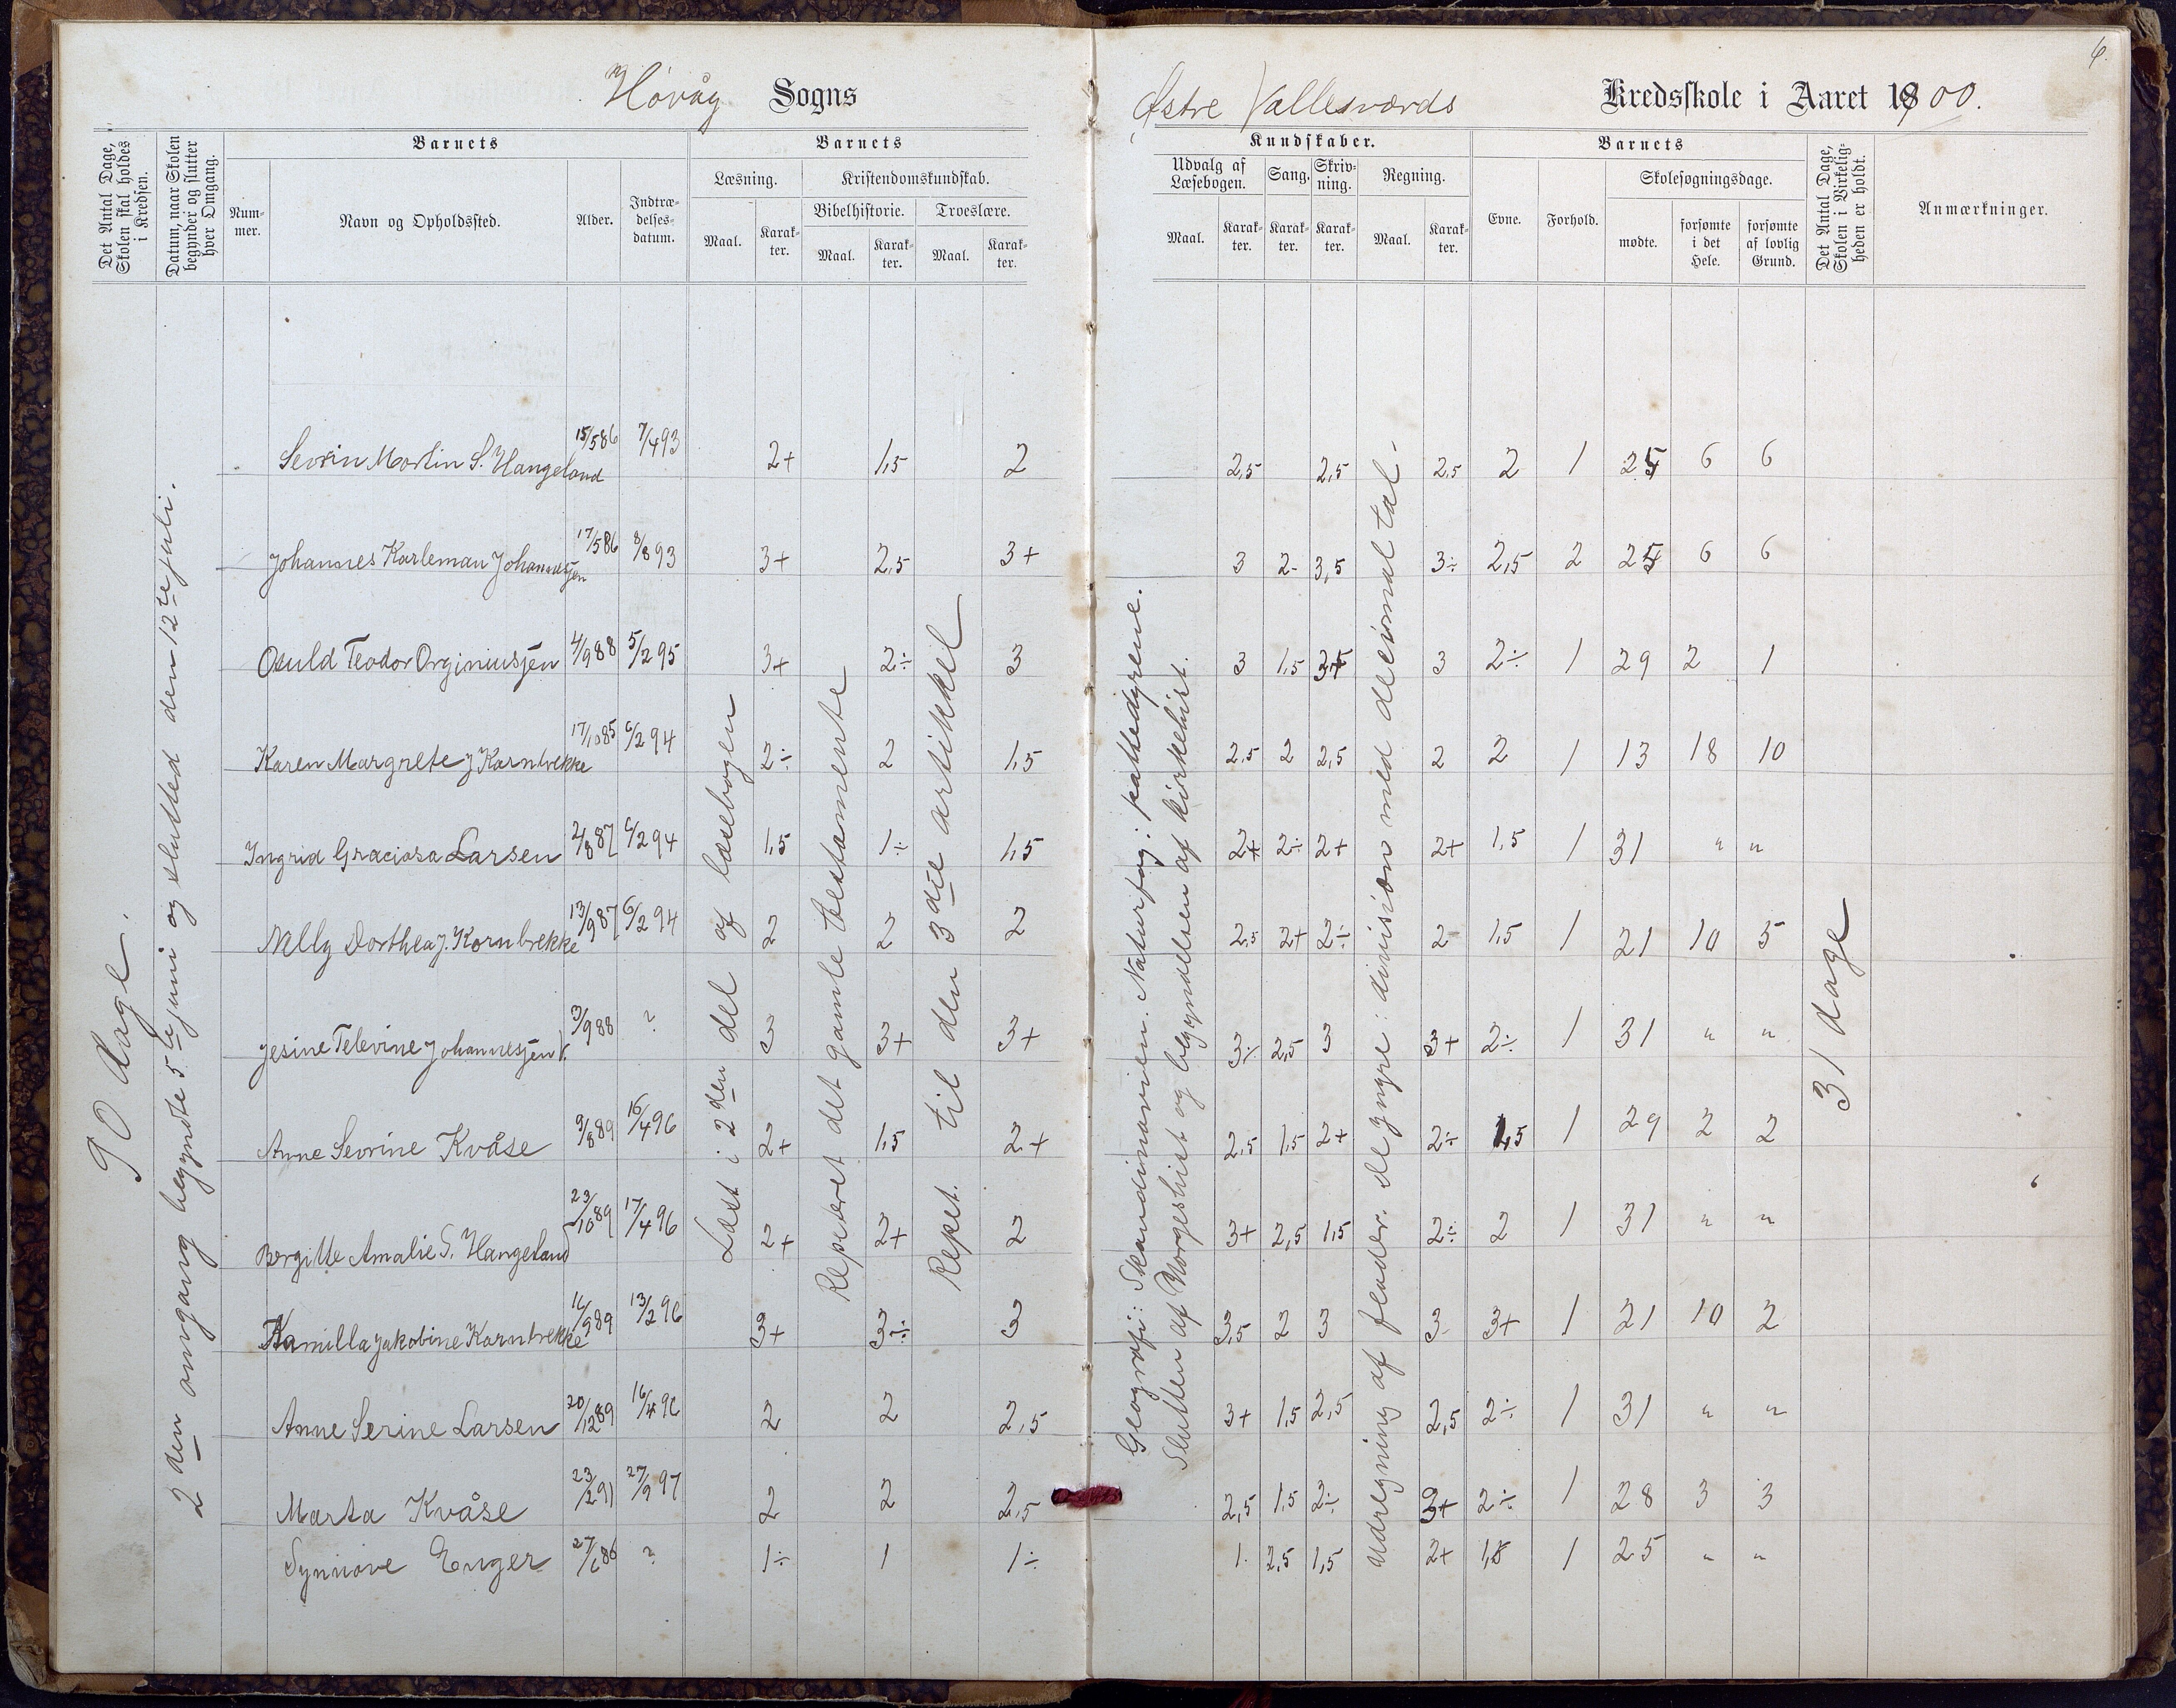 6.
Høvåg Sogns
Østre Vallesværds Kredsskole i Aaret 1900.
Det Antal Dage, Skolen skal holdes i Kredsen.
Datum, naar Skolen begynder og slutter hver Omgang.
Barnets
Nummer.
Navn og Opholdssted.
Alder.
Indtrædelsesdatum.
Barnets
Læsning.
Maal.
Karakter.
Kristendomskundskab.
Bibelhistorie.
Maal.
Karakter.
Troeslære.
Maal.
Karakter.
Kundskaber.
Udvalg af Læsebogen.
Maal.
Karakter.
Sang.
Karakter.
Skrivning.
Karakter.
Regning.
Maal.
Karakter.
Barnets
Evne.
Forhold.
Skolesøgningsdage.
mødte.
forsømte i det Hele.
forsømte af lovlig Grund.
Det Antal Dage, Skolen i Virkeligheden er holdt.
Anmærkninger.
90 dage.
2den omgang begyndte 5te juni og slutted den 12te juli.
Læst i 2den del af læsebogen
Repeteret det gamle testamente
Repet. til den 3die artikkel
Geografi: Skandinavien. Naturfag: pattedyrene.
Slutten af Norgeshist og begyndelsen af kirkehist.
Udregning af flader. De yngre: division med decimaltal.
31 dage
Sevrin Martin S. Hangeland 15/5 86 7/4 93 2+ 1,5 2 2,5 2,5 2,5 2 1 25 6 6
Johannes Karleman Johannesjen 17/5 86 8/8 93 3+ 2,5 3+ 3 2- 3,5 3÷ 2,5 2 25 6 6
Osuld Teodor Orginiusjen 4/9 88 5/2 95 3+ 2÷ 3 3 1,5 3+ 3 2÷ 1 29 2 1
Karen Margrete J Kornbrekke 17/10 85 6/2 94 2÷ 2 1,5 2,5 2 2,5 2 2 1 13 18 10
Ingrid Graciosa Larsen 2/8 87 6/2 94 1,5 1÷ 1,5 2+ 2÷ 2+ 2+ 1,5 1 31 " "
Nelly Dorthea J. Kornbrekke 13/9 87 6/2 94 2 2 2 2,5 2+ 2÷ 2 1,5 1 21 10 5
Jesine Televine Johannesjen V. 3/9 88 ? 3 3+ 3+ 3÷ 2,5 3 3+ 2÷ 1 31 " "
Anne Sevrine Kvåse 9/8 89 16/4 96 2+ 1,5 2+ 2,5 1,5 2+ 2÷ 1,5 1 29 2 2
Bergitte Amalie S. Hangeland 23/10 89 17/4 96 2+ 2+ 2 3+ 2,5 1,5 2÷ 2 1 31 " "
Kamilla Jakobine Kornbrekke 16/9 89 13/2 96 3+ 3÷ 3 3,5 2 3 3 3+ 1 21 10 2
Anne Serine Larsen 20/12 89 16/4 96 2 2 2,5 3+ 1,5 2,5 2,5 2÷ 1 31 " "
Marta Kvåse 23/2 91 27/9 97 2 2 2,5 2,5 1,5 2÷ 3+ 2÷ 1 28 3 3
Synnøve Enger 27/6 86 ? 1÷ 1 1÷ 1 2,5 1,5 2+ 1,5 1 25 " "